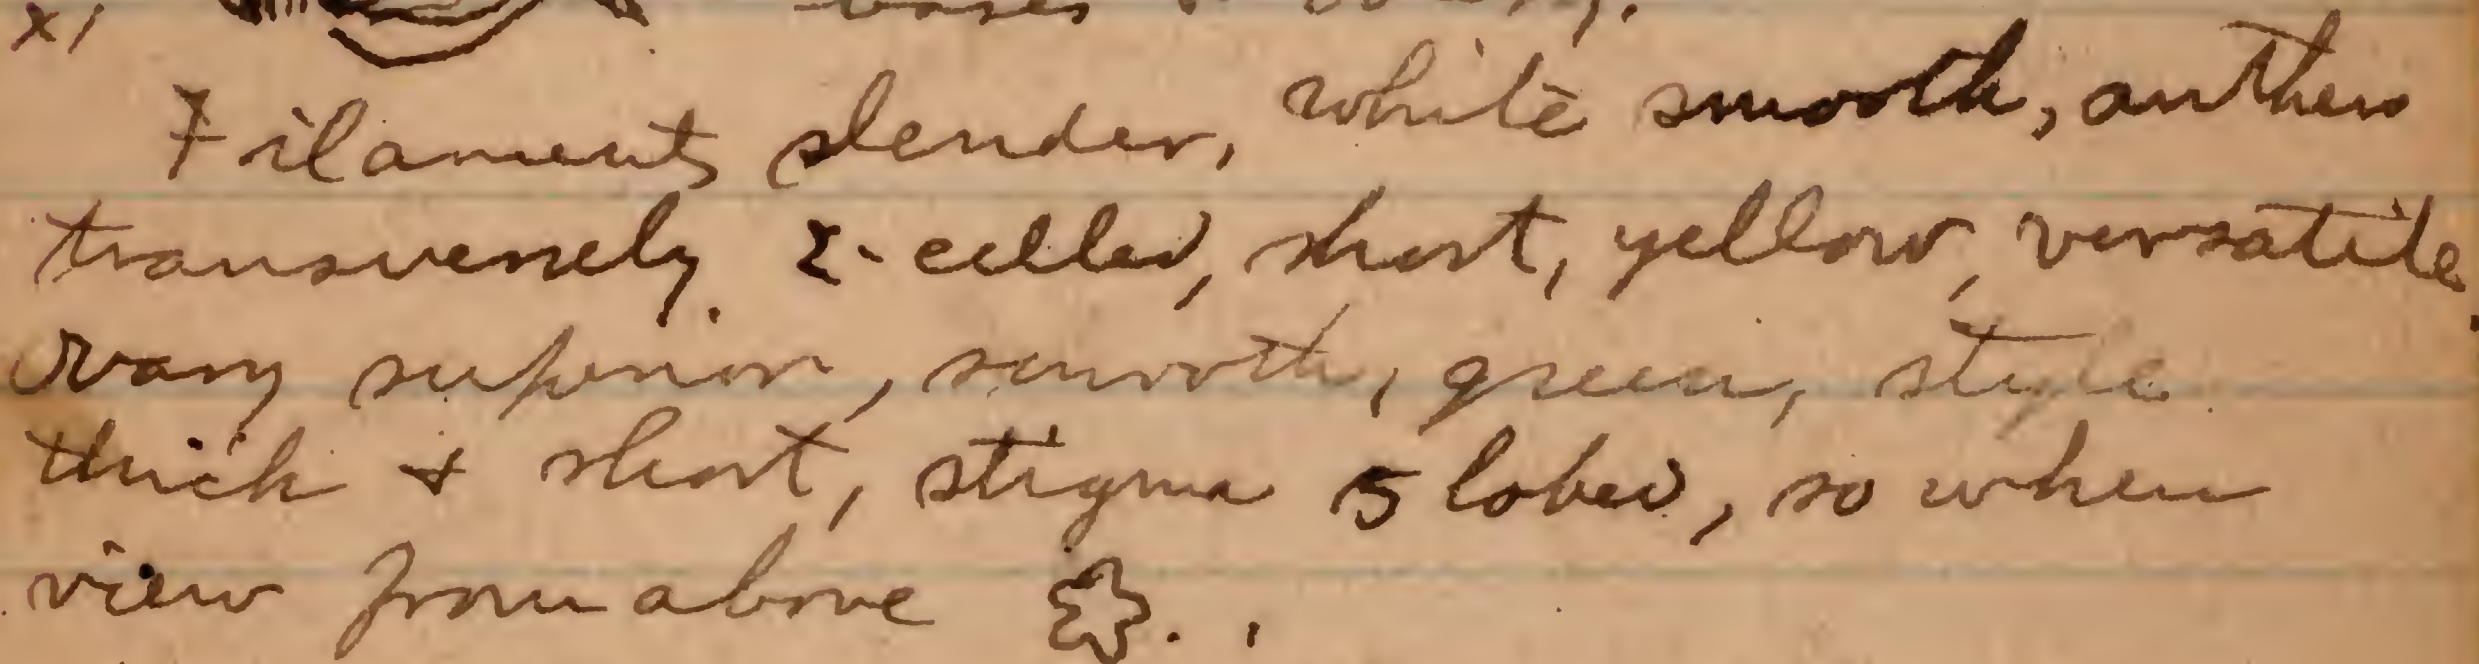 x1
Filaments slender, white smooth, anthers
transversely 2-celled, short, yellow, versatile.
Ovary superior, smooth, green, style
thick + short, stigma 5 lobed, so when
view from above .